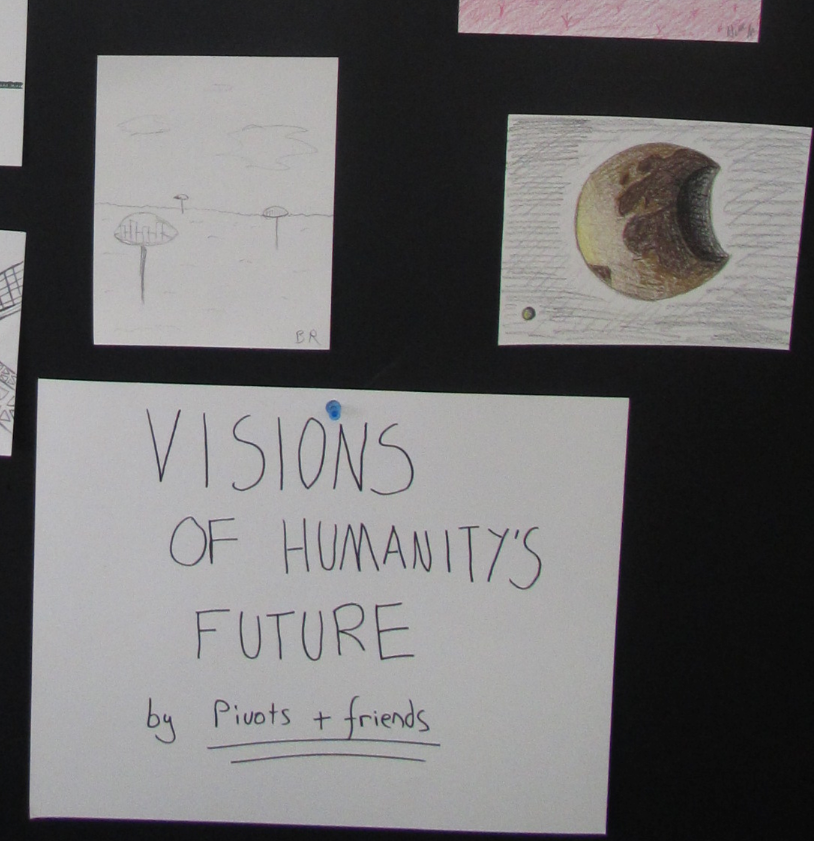 BR
VISIONS
OF HUMANITY'S
FUTURE
by Pivots + friends